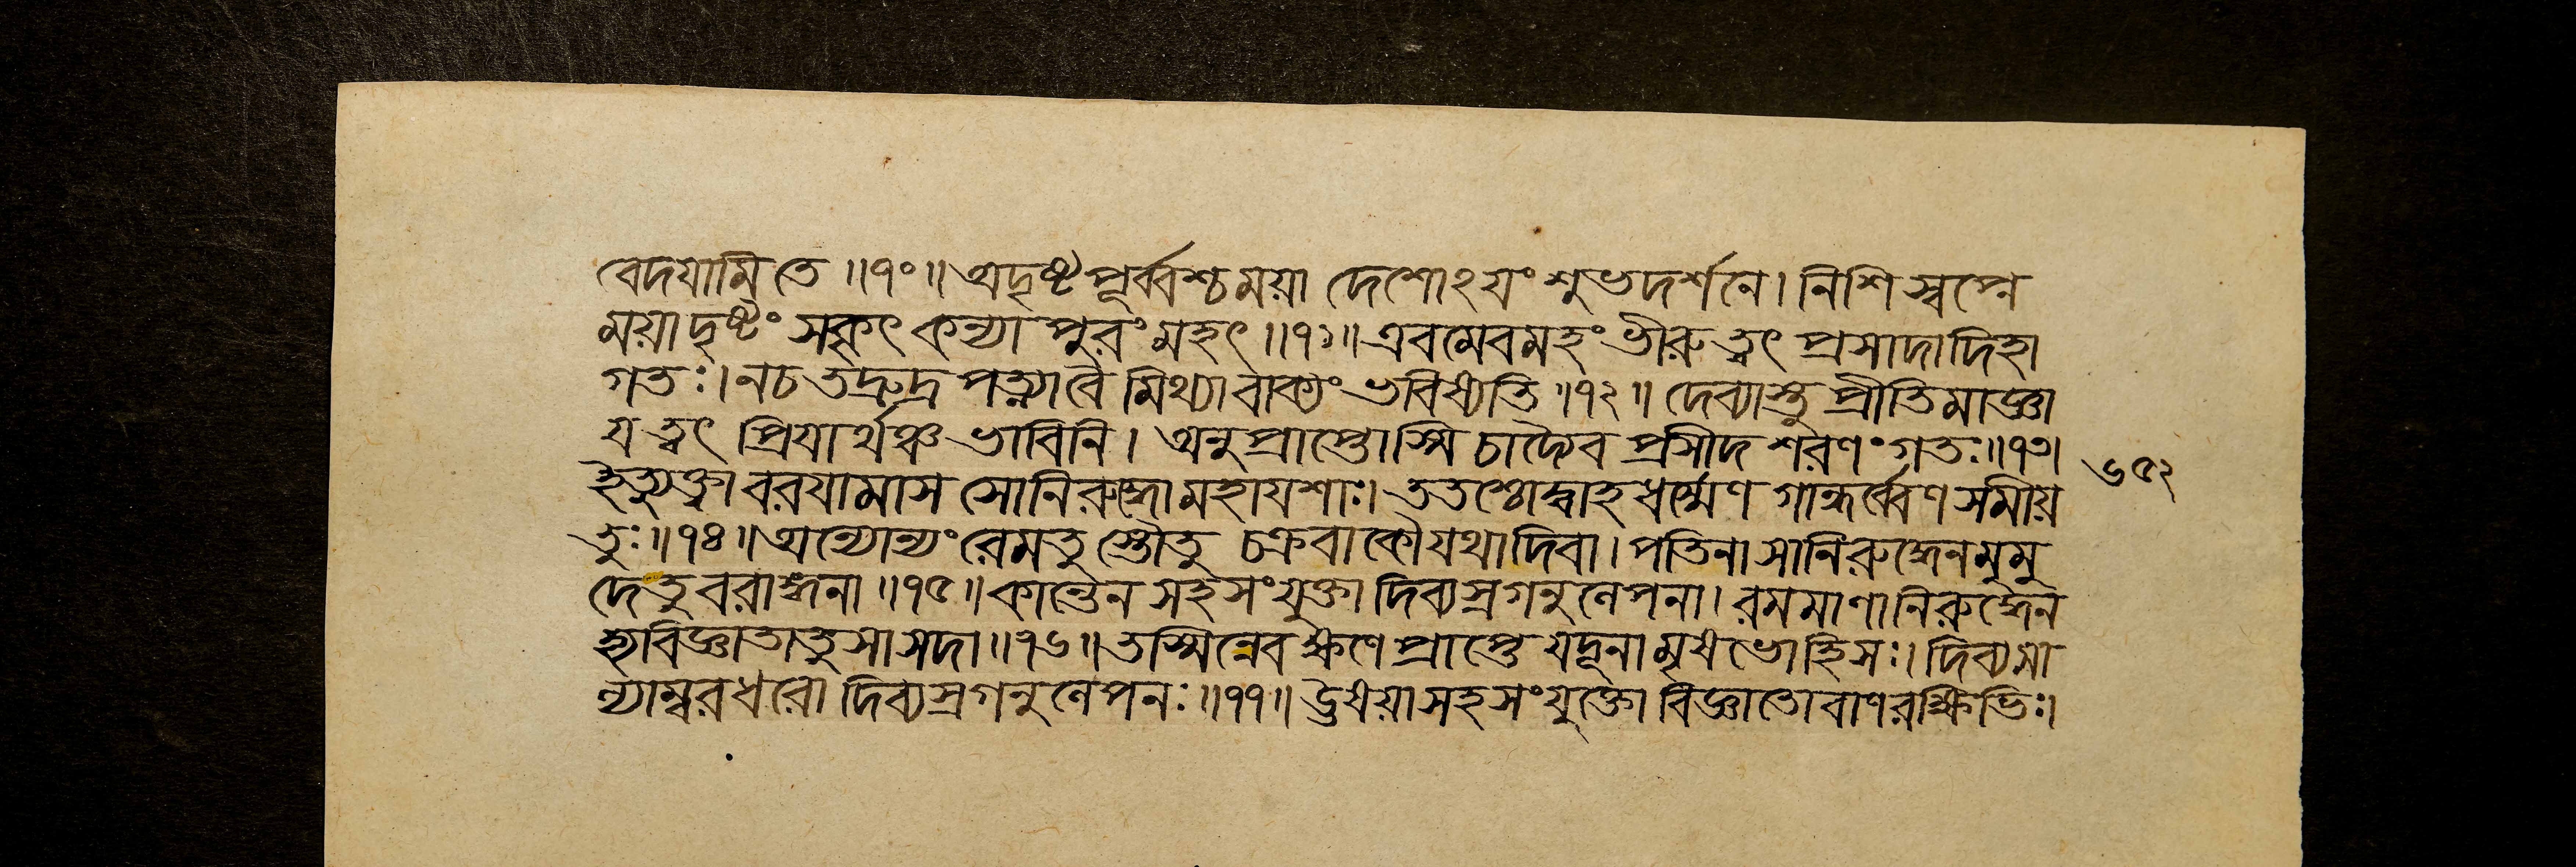 বেদযামি তে ॥৭০॥ অদৃষ্টপূর্ব্বশ্চ ময়া দেশোঽযং শুভদর্শনে। নিশি স্বপ্নে
ময়া দৃষ্টং সকৃৎ কন্যা পুরং মহৎ ॥৭১॥ এবমেবমহং ভীরু ত্বৎ প্রসাদাদিহা
গতঃ। ন চ তদ্রুদ্র পত্ন্যা বৈ মিথ্যা বাক্যং ভবিষ্যতি ॥৭২॥ দেব্যাস্তু প্রীতিমাজ্ঞা
য ত্বৎ প্রিযার্থঞ্চ ভাবিনি। অনুপ্রাপ্তোস্মি চাদ্যৈব প্রসীদ শরণং গতঃ॥৭৩।
ইত্যুক্ত্বা বরযামাস সোনিরুদ্ধো মহাযশাঃ। ততশ্চোদ্বাহ ধর্ম্মেণ গান্ধর্ব্বেণ সমীয়
তুঃ॥৭৪॥ অন্যোন্যং রেমতু স্তৌতু চক্রবাকৌ যথা দিবা। পতিনা সানিরুদ্ধেন মুমু
দে তু বরাঙ্গনা ॥৭৫॥ কান্তেন সহ সংযুক্তা দিব্যস্রগনুলেপনা। রমমাণানিরুদ্ধেন
হ্যবিজ্ঞাতা তু সা সদা ॥৭৬॥ তস্মিন্নেব ক্ষণে প্রাপ্তে যদূনামৃষভোহি সঃ। দিব্যমা
ল্যাম্বরধরো দিব্যস্রগনুলেপনঃ ॥৭৭॥ উষয়া সহ সংযুক্তো বিজ্ঞাতো বাণরক্ষিভিঃ।
৬৫২